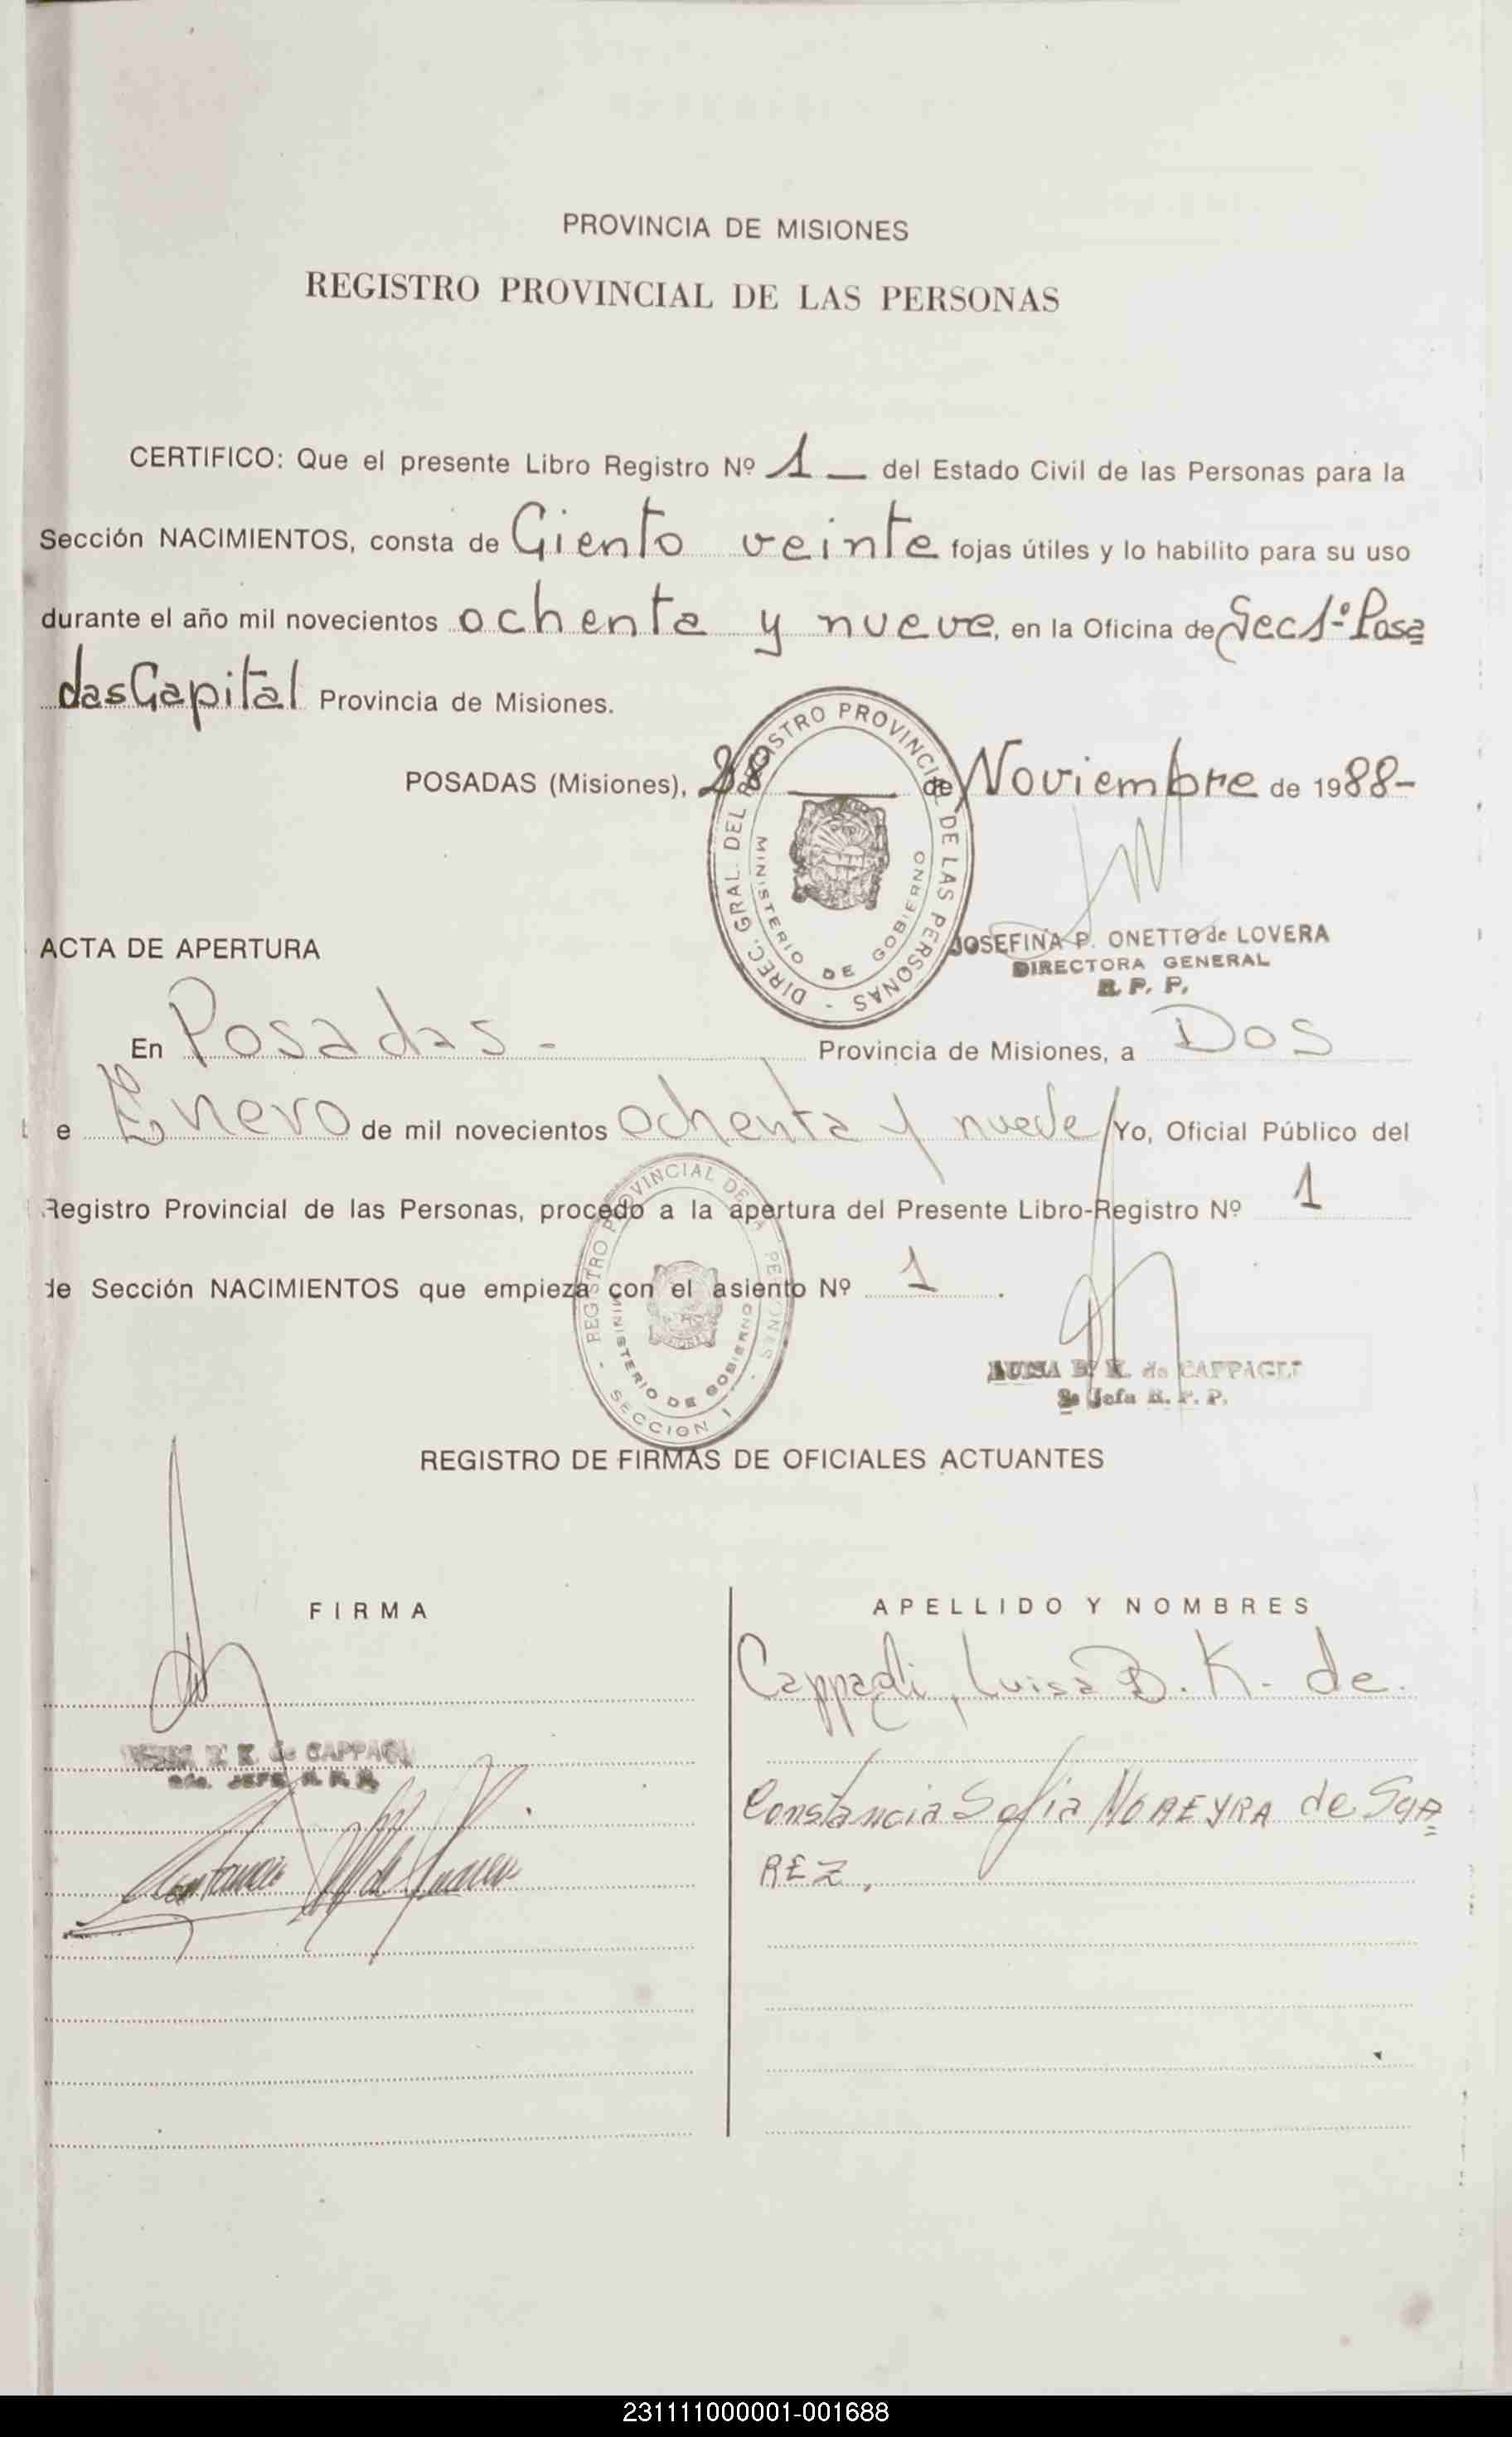 PROVINCIA DE MISIONES
REGISTRO PROVINCIAL DE LAS PERSONAS
CERTIFICO: Que el presente Libro Registro Nº 1 — del Estado Civil de las Personas para la
Sección NACIMIENTOS, consta de Ciento veinte fojas útiles y lo habilito para su uso
durante el año mil novecientos ochenta y nueve, en la Oficina de Sec 1º Posa
das Capital Provincia de Misiones.
POSADAS (Misiones), 28 de Noviembre de 1988-
DIREC. GRAL. DEL REGISTRO PROVINCIAL DE LAS PERSONAS -
MINISTERIO DE GOBIERNO
JOSEFINA P. ONETTO de LOVERA
DIRECTORA GENERAL
R. P. P.
ACTA DE APERTURA
En Posadas - Provincia de Misiones, a Dos
e Enero de mil novecientos ochenta y nueve Yo, Oficial Público del
Registro Provincial de las Personas, procedo a la apertura del Presente Libro-Registro Nº 1
de Sección NACIMIENTOS que empieza con el asiento Nº 1 .
- REGISTRO PROVINCIAL DE LAS PERSONAS -
MINISTERIO DE GOBIERNO
SECCION 1
LUISA B. K. de CAPPAGLI
Jefa R. P. P.
REGISTRO DE FIRMAS DE OFICIALES ACTUANTES
FIRMA APELLIDO Y NOMBRES
Cappagli, Luisa B. K. de.
K. de CAPPAGLI
JEFE R. P. P.
Constancia Sofia MOREYRA de SUA
REZ,
231111000001-001688